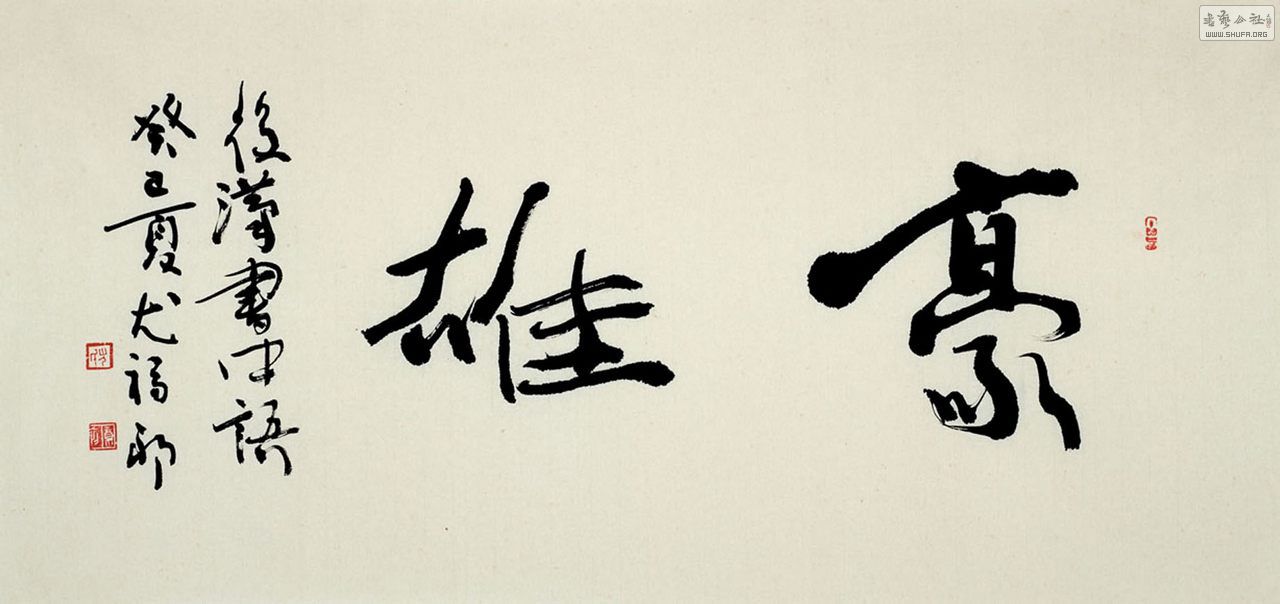 豪雄
後漢書中語
癸巳夏尤福初
書藝公社
WWW.SHUFA.ORG